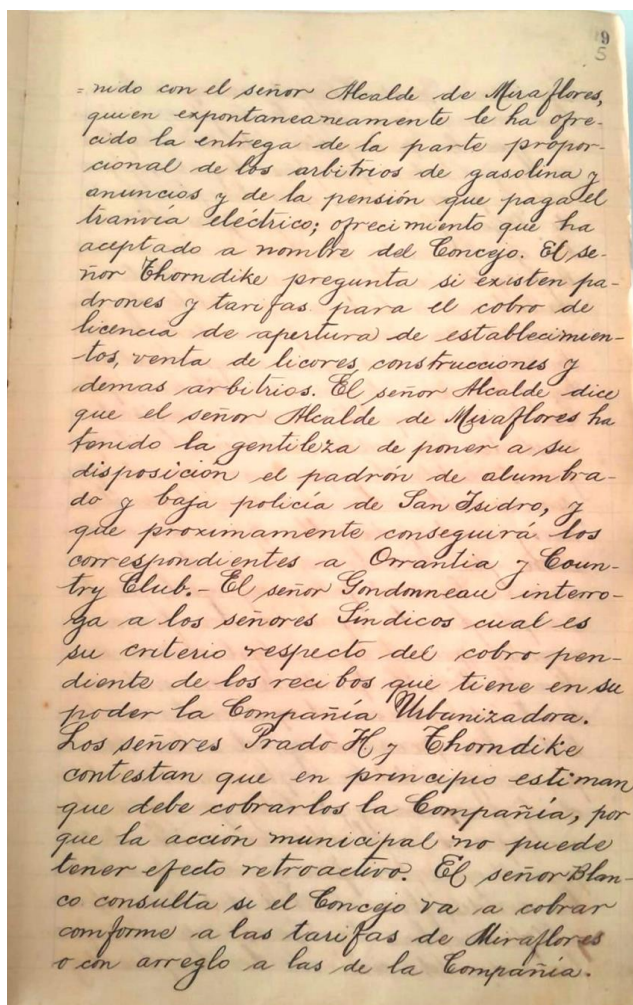 9
5
=nido con el señor Alcalde de Miraflores,
quien expontaneaneamente le ha ofre-
cido la entrega de la parte propor-
cional de los arbitrios de gasolina y
anuncios y de la pensión que paga el
tranvía eléctrico; ofrecimiento que ha
aceptado a nombre del Concejo. El se-
ñor Thorndike pregunta si existen pa-
drones y tarifas para el cobro de
licencia de apertura de establecimien-
tos, venta de licores, construcciones y
demas arbitrios. El señor Alcalde dice
que el señor Alcalde de Miraflores ha
tenido la gentileza de poner a su
disposición el padrón de alumbra-
do y baja policía de San Isidro, y
que proximamente conseguirá los
correspondientes a Orrantia y Coun-
try Club.- El señor Gondonneau interro-
ga a los señores Síndicos cual es
su criterio respecto del cobro pen-
diente de los recibos que tiene en su
poder la Compañía Urbanizadora.
Los señores Prado H y Thorndike
contestan que en principio estiman
que debe cobrarlos la Compañía, por
que la acción municipal no puede
tener efecto retroactivo. El señor Blan-
co consulta si el Concejo va a cobrar
comforme a las tarifas de Miraflores
o con arreglo a las de la Compañía.